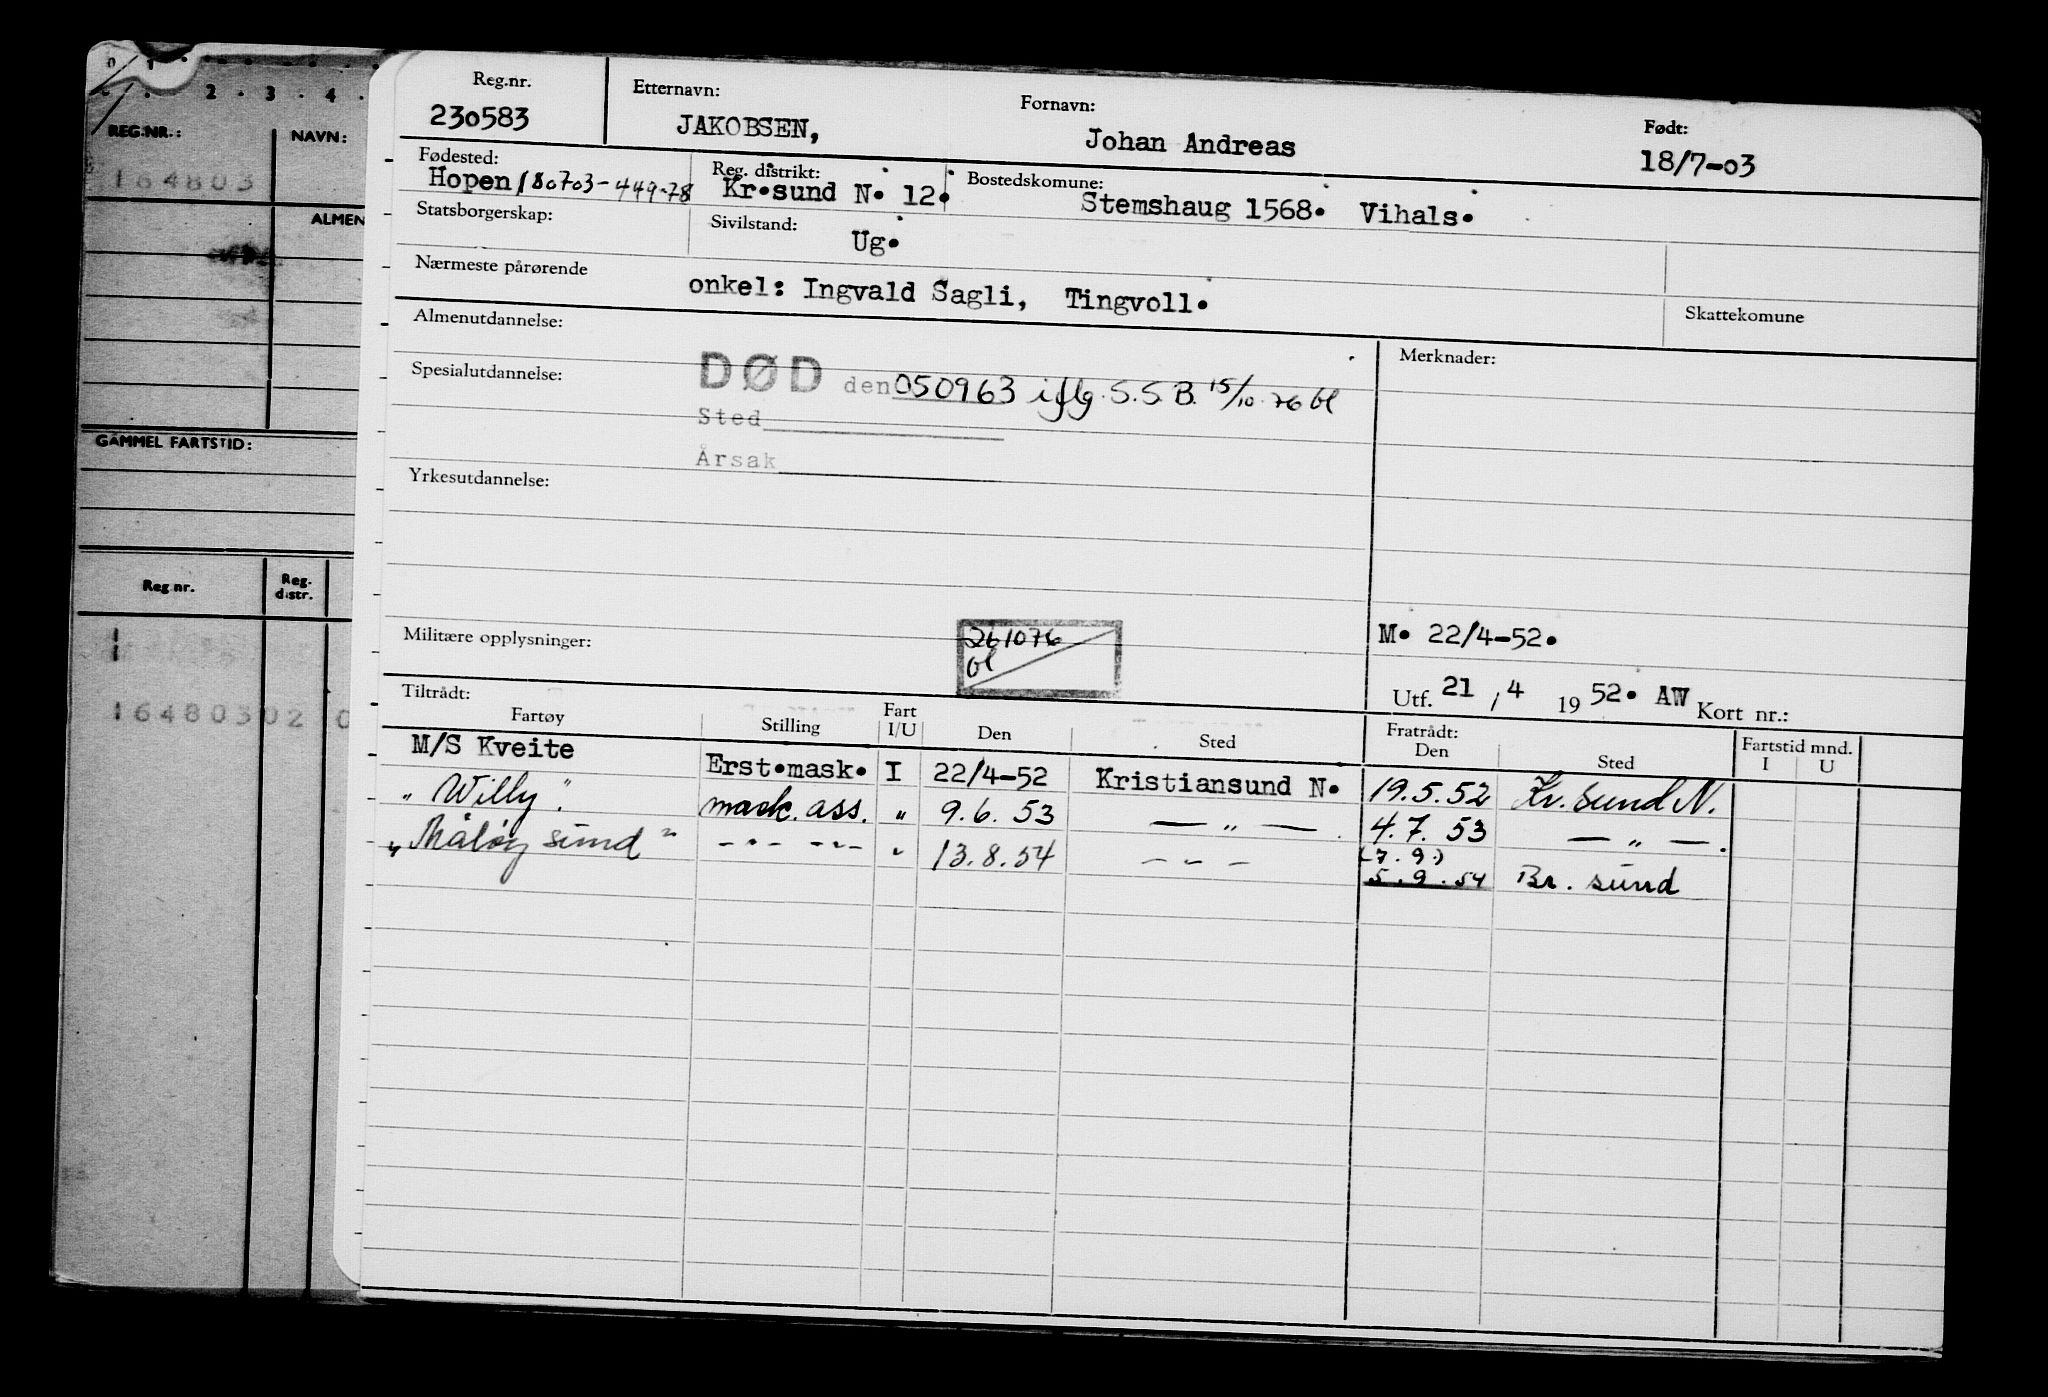 0 1
2 . 3 . 4 .
REG.NR.:
NAVN:
164803
ALMEN
GAMMEL FARTSTID:
Reg.nr.
Reg. distr.
16480302 0
Reg.nr.
Etternavn:
Fornavn:
Født:
230583
JAKOBSEN,
Johan Andreas
18/7-03
Fødested:
Reg. distrikt:
Bostedskomune:
Hopen 180703-449-78
Kr.sund N. 12.
Stemshaug 1568. Vihals.
Statsborgerskap:
Sivilstand:
Ug.
Nærmeste pårørende
onkel: Ingvald Sagli, Tingvoll.
Skattekomune
Almenutdannelse:
Merknader:
Spesialutdannelse:
DØD den 050963 iflg. S.S.B. 15/10-76 bl
Sted
Årsak
Yrkesutdannelse:
Militære opplysninger:
261076
bl
M. 22/4-52.
Utf. 21 / 4 1952. AW Kort nr.:
Tiltrådt:
Fratrådt:
Fartøy
Stilling
Fart I/U
Den
Sted
Den
Sted
Fartstid mnd.
I U
M/S Kveite Erst.mask. I 22/4-52 Kristiansund N. 19.5.52 Kr.sund N.
" Willy". mask. ass. " 9.6.53 — " — . 4.7.53 — " — .
" Måløy sund" - " - - " - " 13.8.54 - " - (7.9.)
5.9.54 Br. sund